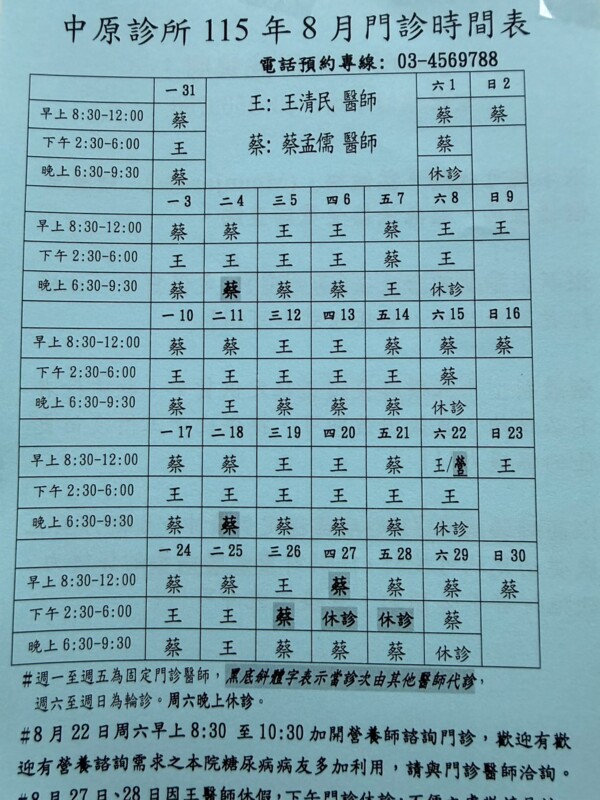 中原診所 115 年 8 月門診時間表
電話預約專線: 03-4569788
一 31 六 1 日 2
王: 王清民 醫師
蔡: 蔡孟儒 醫師
早上 8:30-12:00 蔡 蔡 蔡
下午 2:30-6:00 王 蔡
晚上 6:30-9:30 蔡 休診
一 3 二 4 三 5 四 6 五 7 六 8 日 9
早上 8:30-12:00 蔡 蔡 王 王 蔡 王 王
下午 2:30-6:00 王 王 王 王 蔡 王
晚上 6:30-9:30 蔡 蔡 蔡 蔡 王 休診
一 10 二 11 三 12 四 13 五 14 六 15 日 16
早上 8:30-12:00 蔡 蔡 王 王 蔡 蔡 蔡
下午 2:30-6:00 王 王 王 王 王 蔡
晚上 6:30-9:30 蔡 王 蔡 蔡 蔡 休診
一 17 二 18 三 19 四 20 五 21 六 22 日 23
早上 8:30-12:00 蔡 蔡 王 王 蔡 王/營 王
下午 2:30-6:00 王 王 王 王 王 王
晚上 6:30-9:30 蔡 蔡 蔡 蔡 蔡 休診
一 24 二 25 三 26 四 27 五 28 六 29 日 30
早上 8:30-12:00 蔡 蔡 王 蔡 蔡 蔡 蔡
下午 2:30-6:00 王 王 蔡 休診 休診 蔡
晚上 6:30-9:30 蔡 王 蔡 蔡 蔡 休診
#週一至週五為固定門診醫師，黑底斜體字表示當診次由其他醫師代診，
週六至週日為輪診。周六晚上休診。
#8 月 22 日周六早上 8:30 至 10:30 加開營養師諮詢門診，歡迎有歡
迎有營養諮詢需求之本院糖尿病病友多加利用，請與門診醫師洽詢。
#8 月 27 日、28 日因王醫師休假，下午門診休診